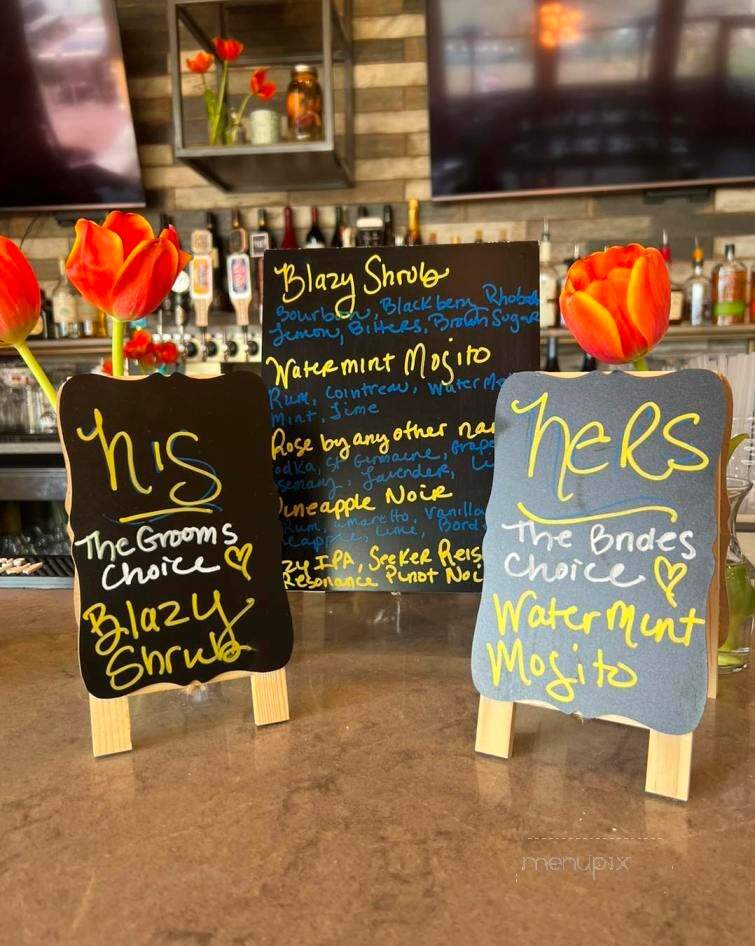 Blazy Shrub
Bourbon, Blackberry, Rhubarb
Lemon, Bitters, Brown Sugar
Watermint Mojito
Rum, Cointreau, Waterme
Mint, Lime
Rose by any other nam
odka, St Germaine, Grape
semary, Lavender, Li
ineapple Noir
Rum, amaretto, Vanilla
eapple, Lime, Bord
zy IPA, Seeker Reis
Resonance Pinot Noi
his
The Grooms
Choice
Blazy
Shrub
hers
The Brides
Choice
Watermint
Mojito
menupix